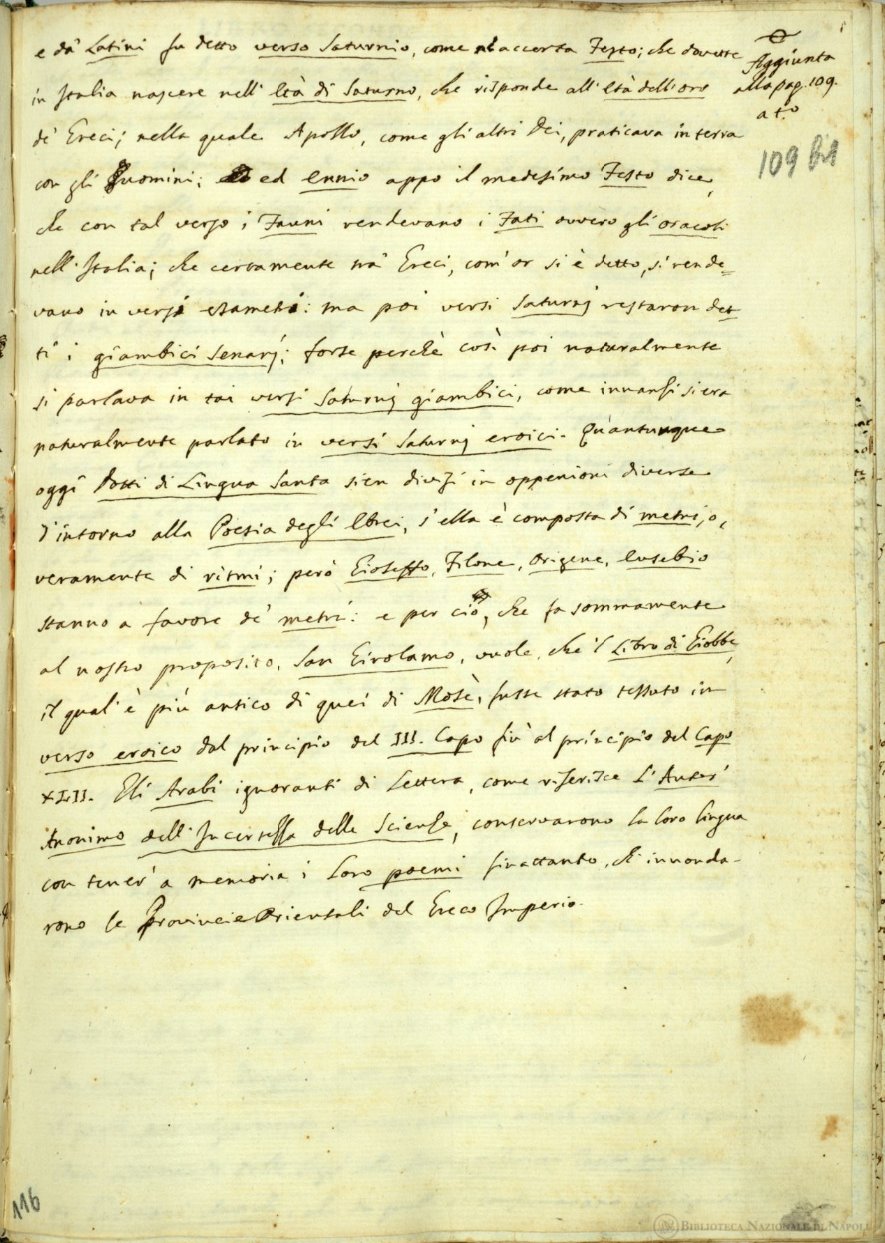 e da' Latini fu detto verso Saturnio, come n'accerta Festo; che dovette
in Italia nascere nell' Età di Saturno, che risponde all' Età dell' oro
de' Greci; nella quale Apollo, come gli altri Dei, praticava in terra
con gli Huomini; ed Ennio appo il medesimo Festo dice,
che con tal verso i Fauni rendevano i Fati ovvero gli oracoli
nell' Italia; che certamente tra' Greci, com' or si è detto, si rende=
vano in versi esametri: ma poi versi Saturnj restaron det-
ti i giambici Senarj; forse perchè così poi naturalmente
si parlava in tai versi Saturnj giambici, come innanzi si era
naturalmente parlato in versi Saturnj eroici. Quantunque
oggi Dotti di Lingua Santa sien divisi in oppenioni diverse
d'intorno alla Poesia degli Ebrei, s'ella è composta di metri, o,
veramente di ritmi; però Gioseffo, Filone, Origene, Eusebio
stanno a favore de' metri: e per ciò, che fa sommamente
al nostro proposito, San Girolamo, vuole, che 'l Libro di Giobbe,
il qual' è più antico di quei di Mosè, fusse stato tessuto in
verso eroico dal principio del III. Capo fin' al principio del Capo
XLII. Gli Arabi ignoranti di Lettera, come riferisce l' Auter'
Anonimo dell' Incertezza delle Scienze, conservarono la loro lingua
con tener' a memoria i loro poemi finattanto, ch' innonda-
rono le Provincie Orientali del Greco Imperio.
Aggiunta
alla pag. 109.
a t.o
109 bis
116
BIBLIOTECA NAZIONALE DI NAPOLI